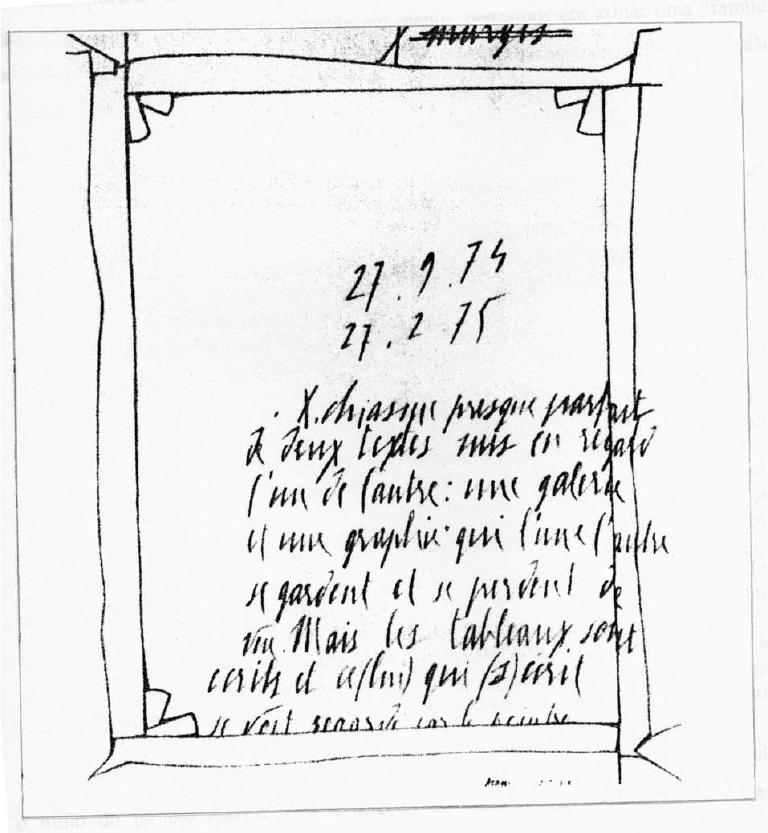 X margis
27.9.74
27.2.75
X. chiasme presque parfait
de deux textes mis en regard
l'un de l'autre: une galerie
et une graphie qui l'une l'autre
se gardent et se perdent de
vue. Mais les tableaux sont
ecrits et ce(lui) qui (s)ecrit
se voit regardé par le peintre